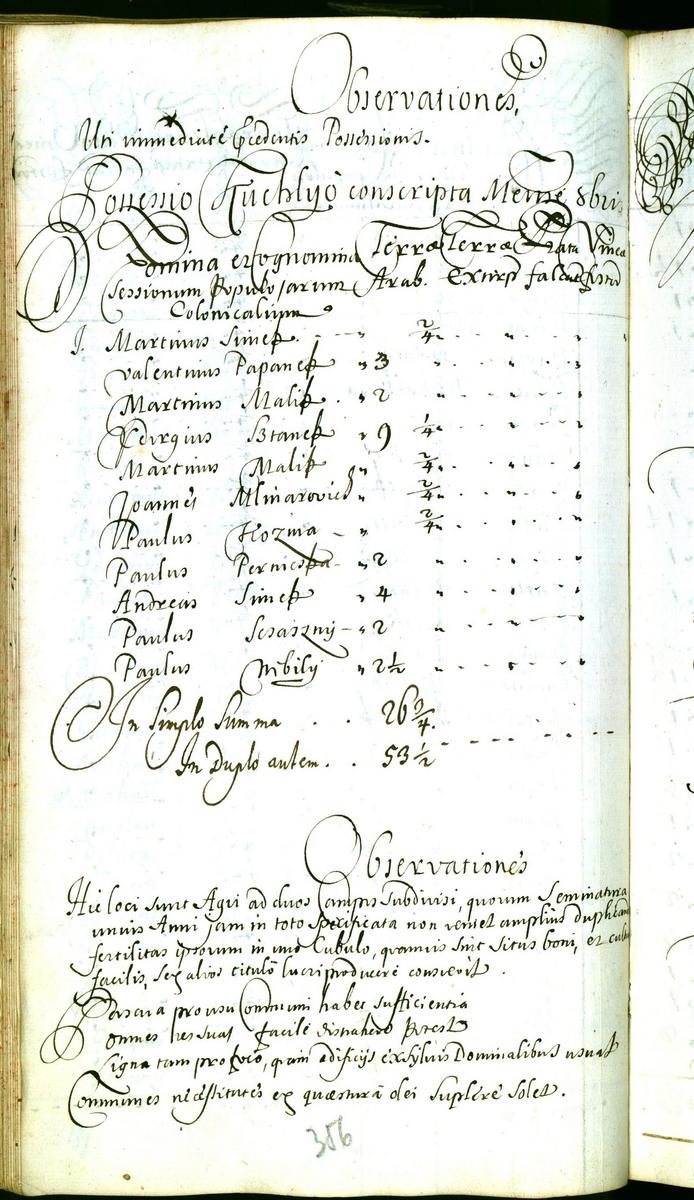 Observationes,
Uti immediate Precedentis Possessionis.
Possessio Kuchlyo conscripta Mense 8bris
Nomina et Cognomina Terræ Terræ Prata Vineæ
Sessionum Populosarum Arab. Extirp falcat
Colonicalium
1. Martinus Simek. " 2/4 " " "
Valentinus Papanek " 3 " " " "
Martinus Malik. " 2 " " " "
Martinus Malik " 2/4 " " "
Joannes Mlinarovich " 2/4 " " "
Paulus Kozma - " 2/4 " " "
Paulus Perniczka - " 2 " " " "
Andreas Simek " 4 " " " "
Paulus - " 2 " " " "
Paulus Nibily " 2 1/2 " " " "
In Simplo Summa . . 26 3/4.
In Duplo autem . . 53 1/2
Observationes
Hic loci sunt Agri ad duos Campos subdivisi, quorum Seminatura
unius Anni jam in toto specificata non venit amplius duplicanda
fertilitas ipsorum in uno Cubulo, quamvis sint situs boni, et
facilis, sex alios titulo lucri producere consvevit.
Pascua pro usu Communi habet sufficientia
omnes res suas facile distrahere Potest
Ligna tam pro foco, quam ædificijs ex Sylvis Dominalibus
Communes necessitates ex quæstura olei Suplere Solet.
356